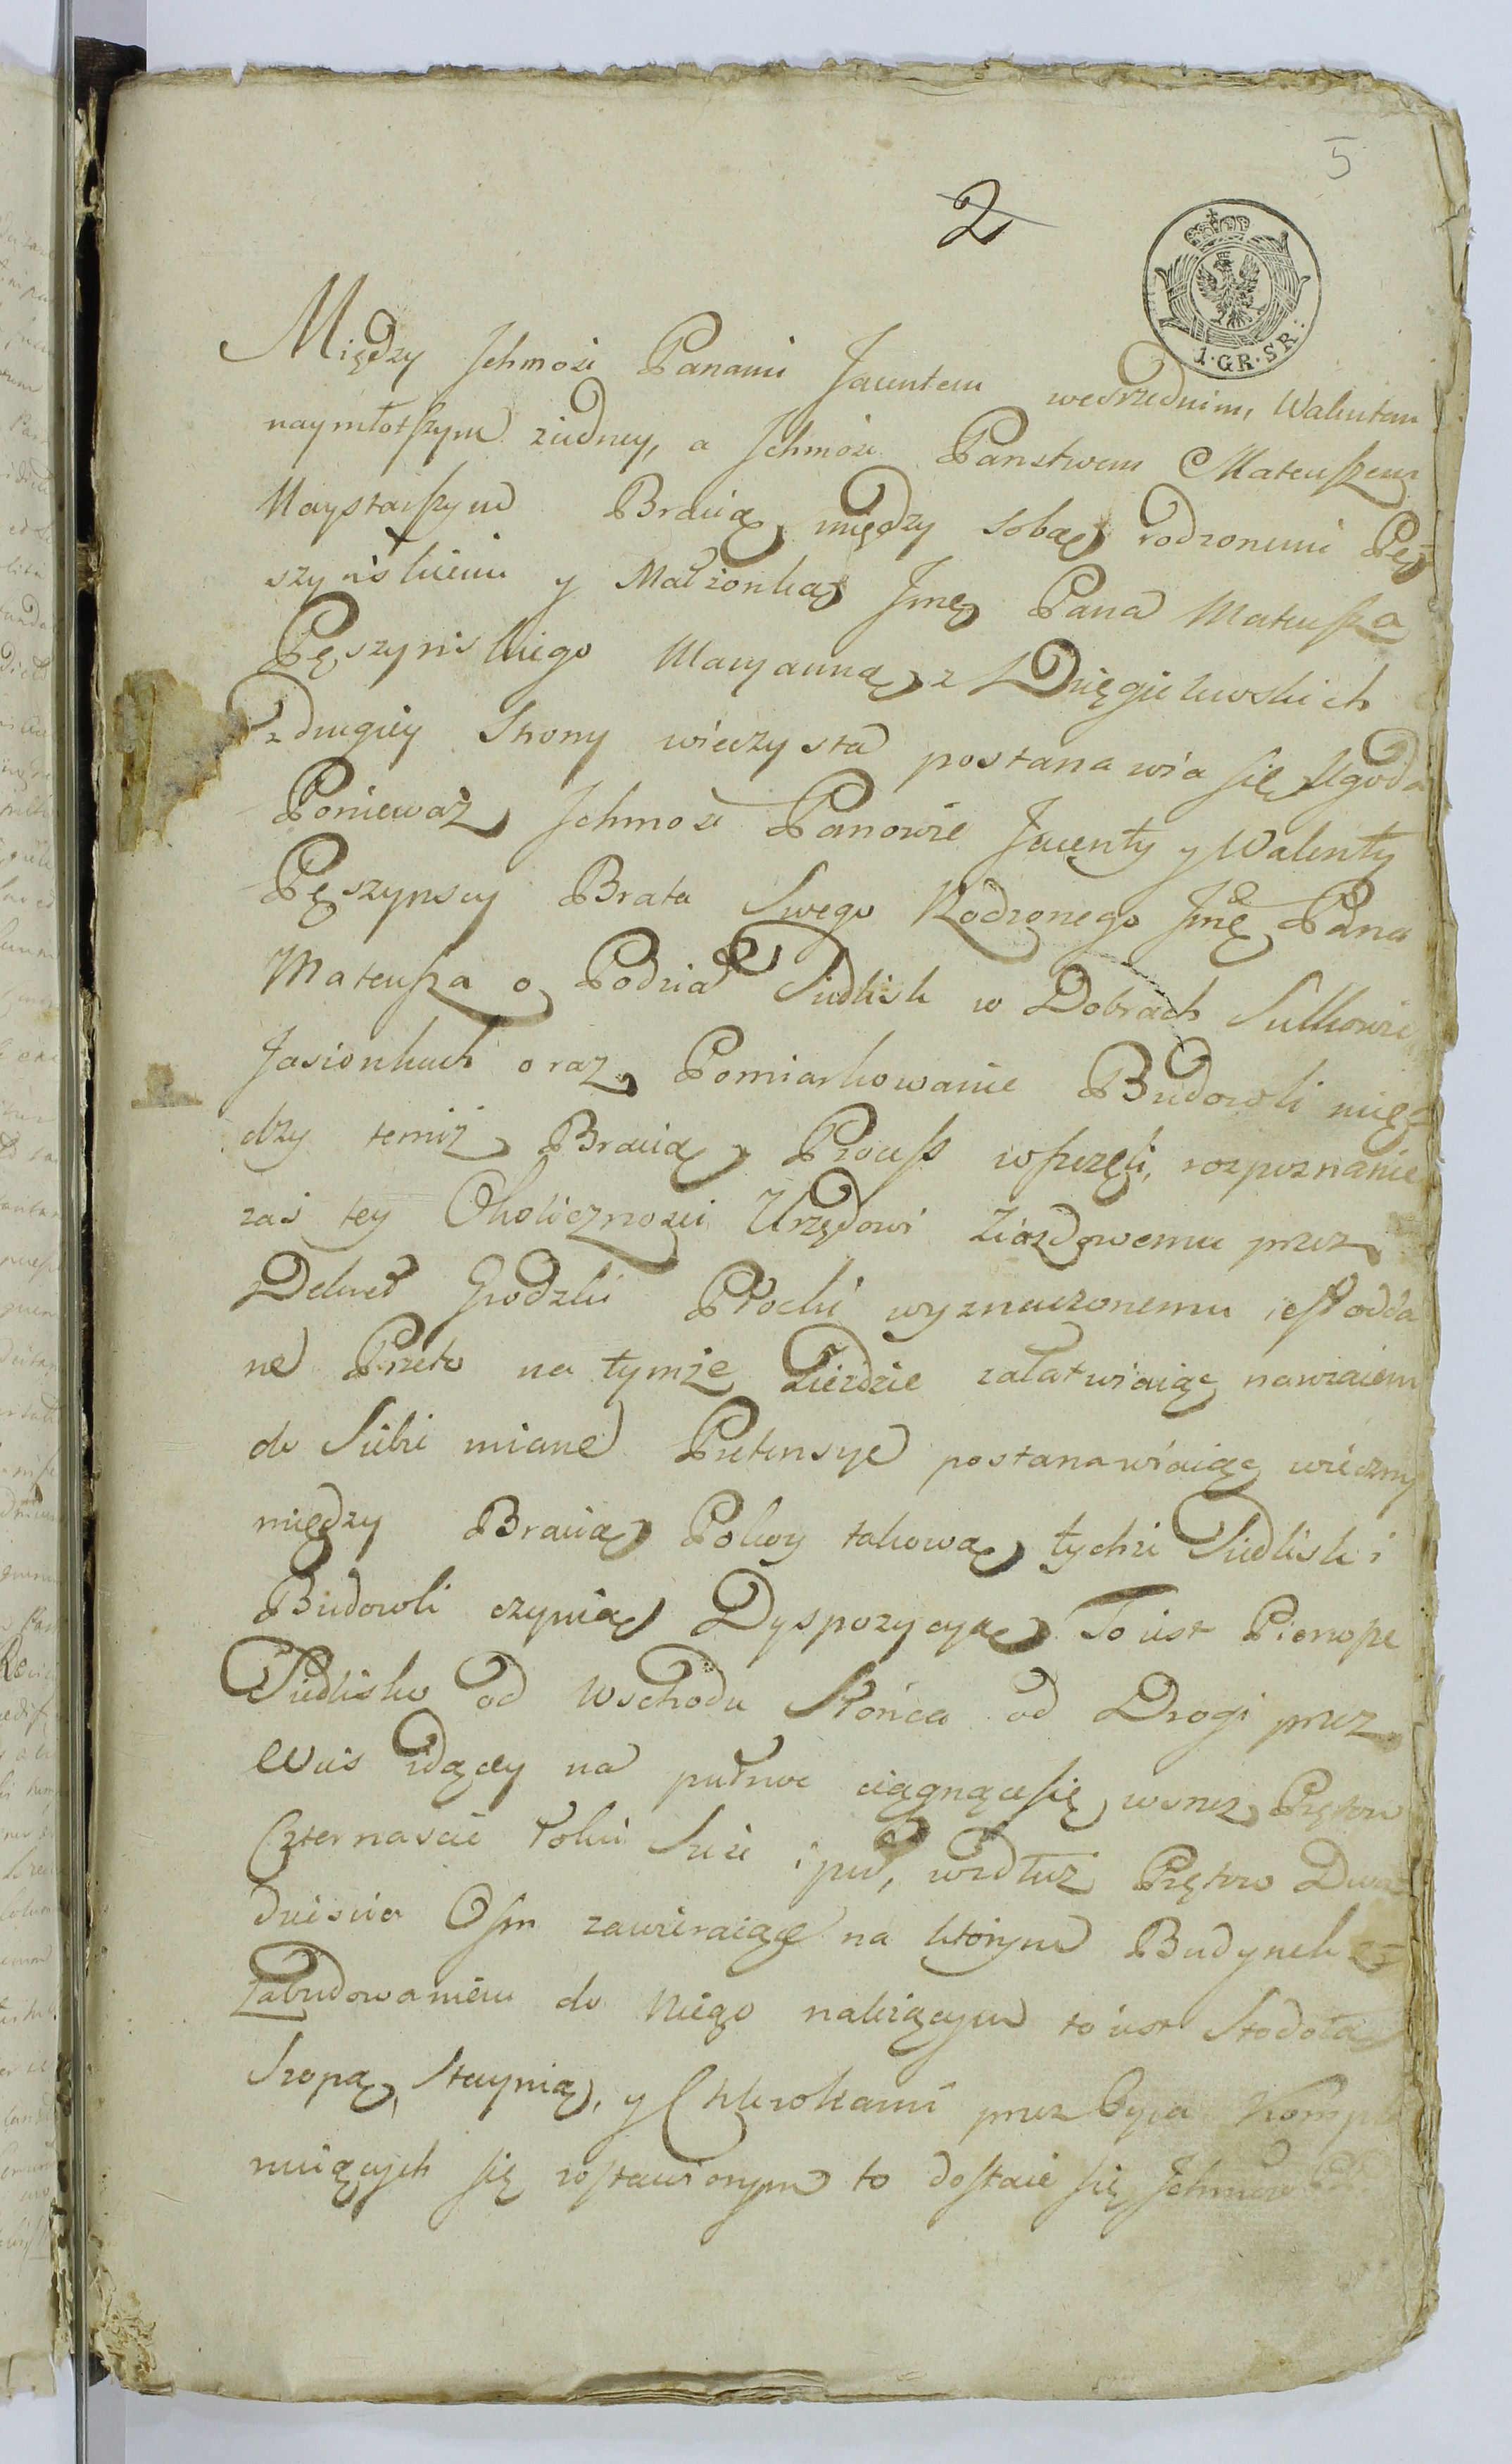 5
2
1·GR·SR·
Między Jchmośi Panami Jacentem wesrzednim, Walentem
naymłotszym ziedney, a Jchmośu Panstwem Mateuszem
Naystarszym Bracią między sobą rodzonemi Pę
szyńskiemi y Małżonką Jmę Pana Mateusza
Pęszyńskiego Maryanną z Dzięgielewskich
z drugiey Strony wieczysta postanawia się Ugoda
Ponieważ Jchmość Panowie Jacenty y Walenty
Pęszynscy Brata Swego Rodzonego Jmę Pana
Mateusza o Podział Siedlisk w Dobrach Sulkowie
Jasionkach oraz Pomiarkowanie Budowli mię=
dzy temiż Bracią Process wszczęli, rozpoznanie
zaś tey Okoliczności Urzędowi Ziazdowemu przez
Dekret Grodzki Płocki wyznaczonemu iest odda
ne Przeto na tymże Zieździe załatwiaiąc nawzaiem
do Siebie miane Pretensye postanawiaiąc wieczny
między Bracią Pokoy takową tychże Siedlisk i
Budowli czynią Dyspozycyą To iest Pierwsze
Siedlisko od Wschodu Słońca od Drogi przez
Wieś idącey na pułnoc ciągnące się wszerz Prętow
Czternaście Łokci Sześć i puł, wzdłuż Prętow Dwa
dzieścia Osm zawieraiące na którym Budynek z=
Zabudowaniem do Niego należącym to iest Stodołą
Szopą, Staynią, y Chlewkami przez Oyca Komple
nuiących się wystawionym to dostaie się Jchmość